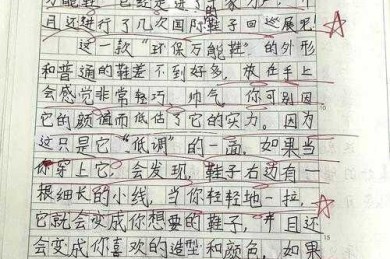 目还进行了几次国际鞋子回巡展呢!
这一款“环保万能鞋”的外形
和普通的鞋差不到好多，放在手上
会感觉非常轻巧 帅气 你可别因
它的颜值而低估了它的实力。因为
这只是它“低调”的一面，如果当
你穿上它，会发现，鞋子右边有一
根细长的小线，当你轻轻地一拉，
它就会变成你想要的鞋子，并且还
会变成你喜欢的造型和颜色，如果